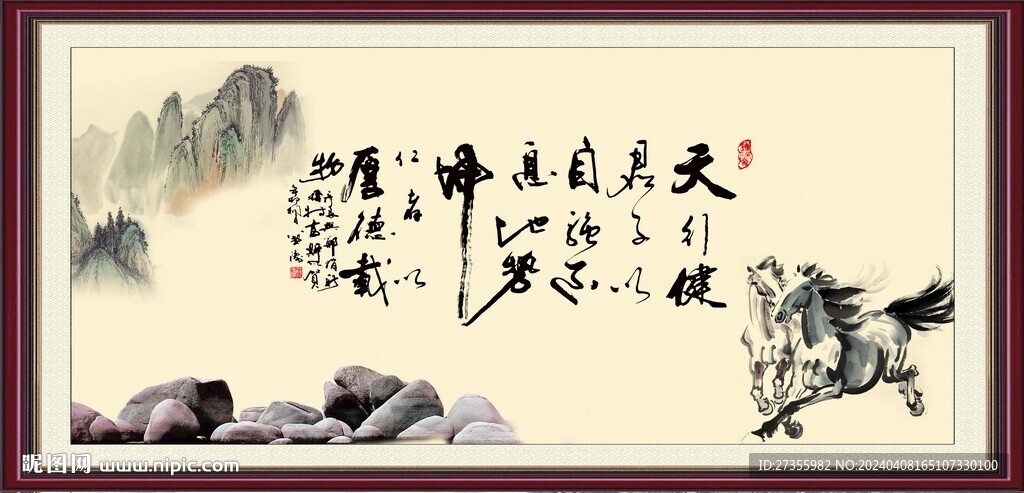 天行健
君子以
自強不
息地勢
坤
仁者以
厚德載
物
昵图网 www.nipic.com
ID:27355982 NO:20240408165107330100